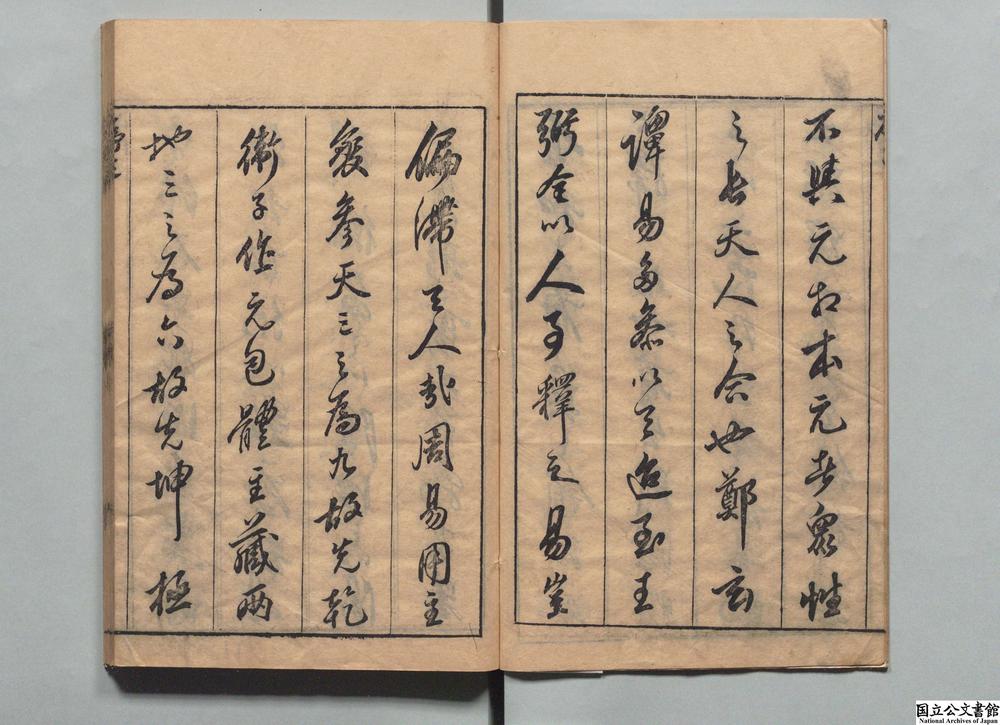 不與元相本元者衆性
之長天人之合也鄭玄
譚易多參以天道至王
弼全以人事釋之易豈
偏滯天人哉周易用主
發參天三之為九故先乾
衛子作元包體主藏兩
地三之為六故先坤 極
国立公文書館
National Archives of Japan